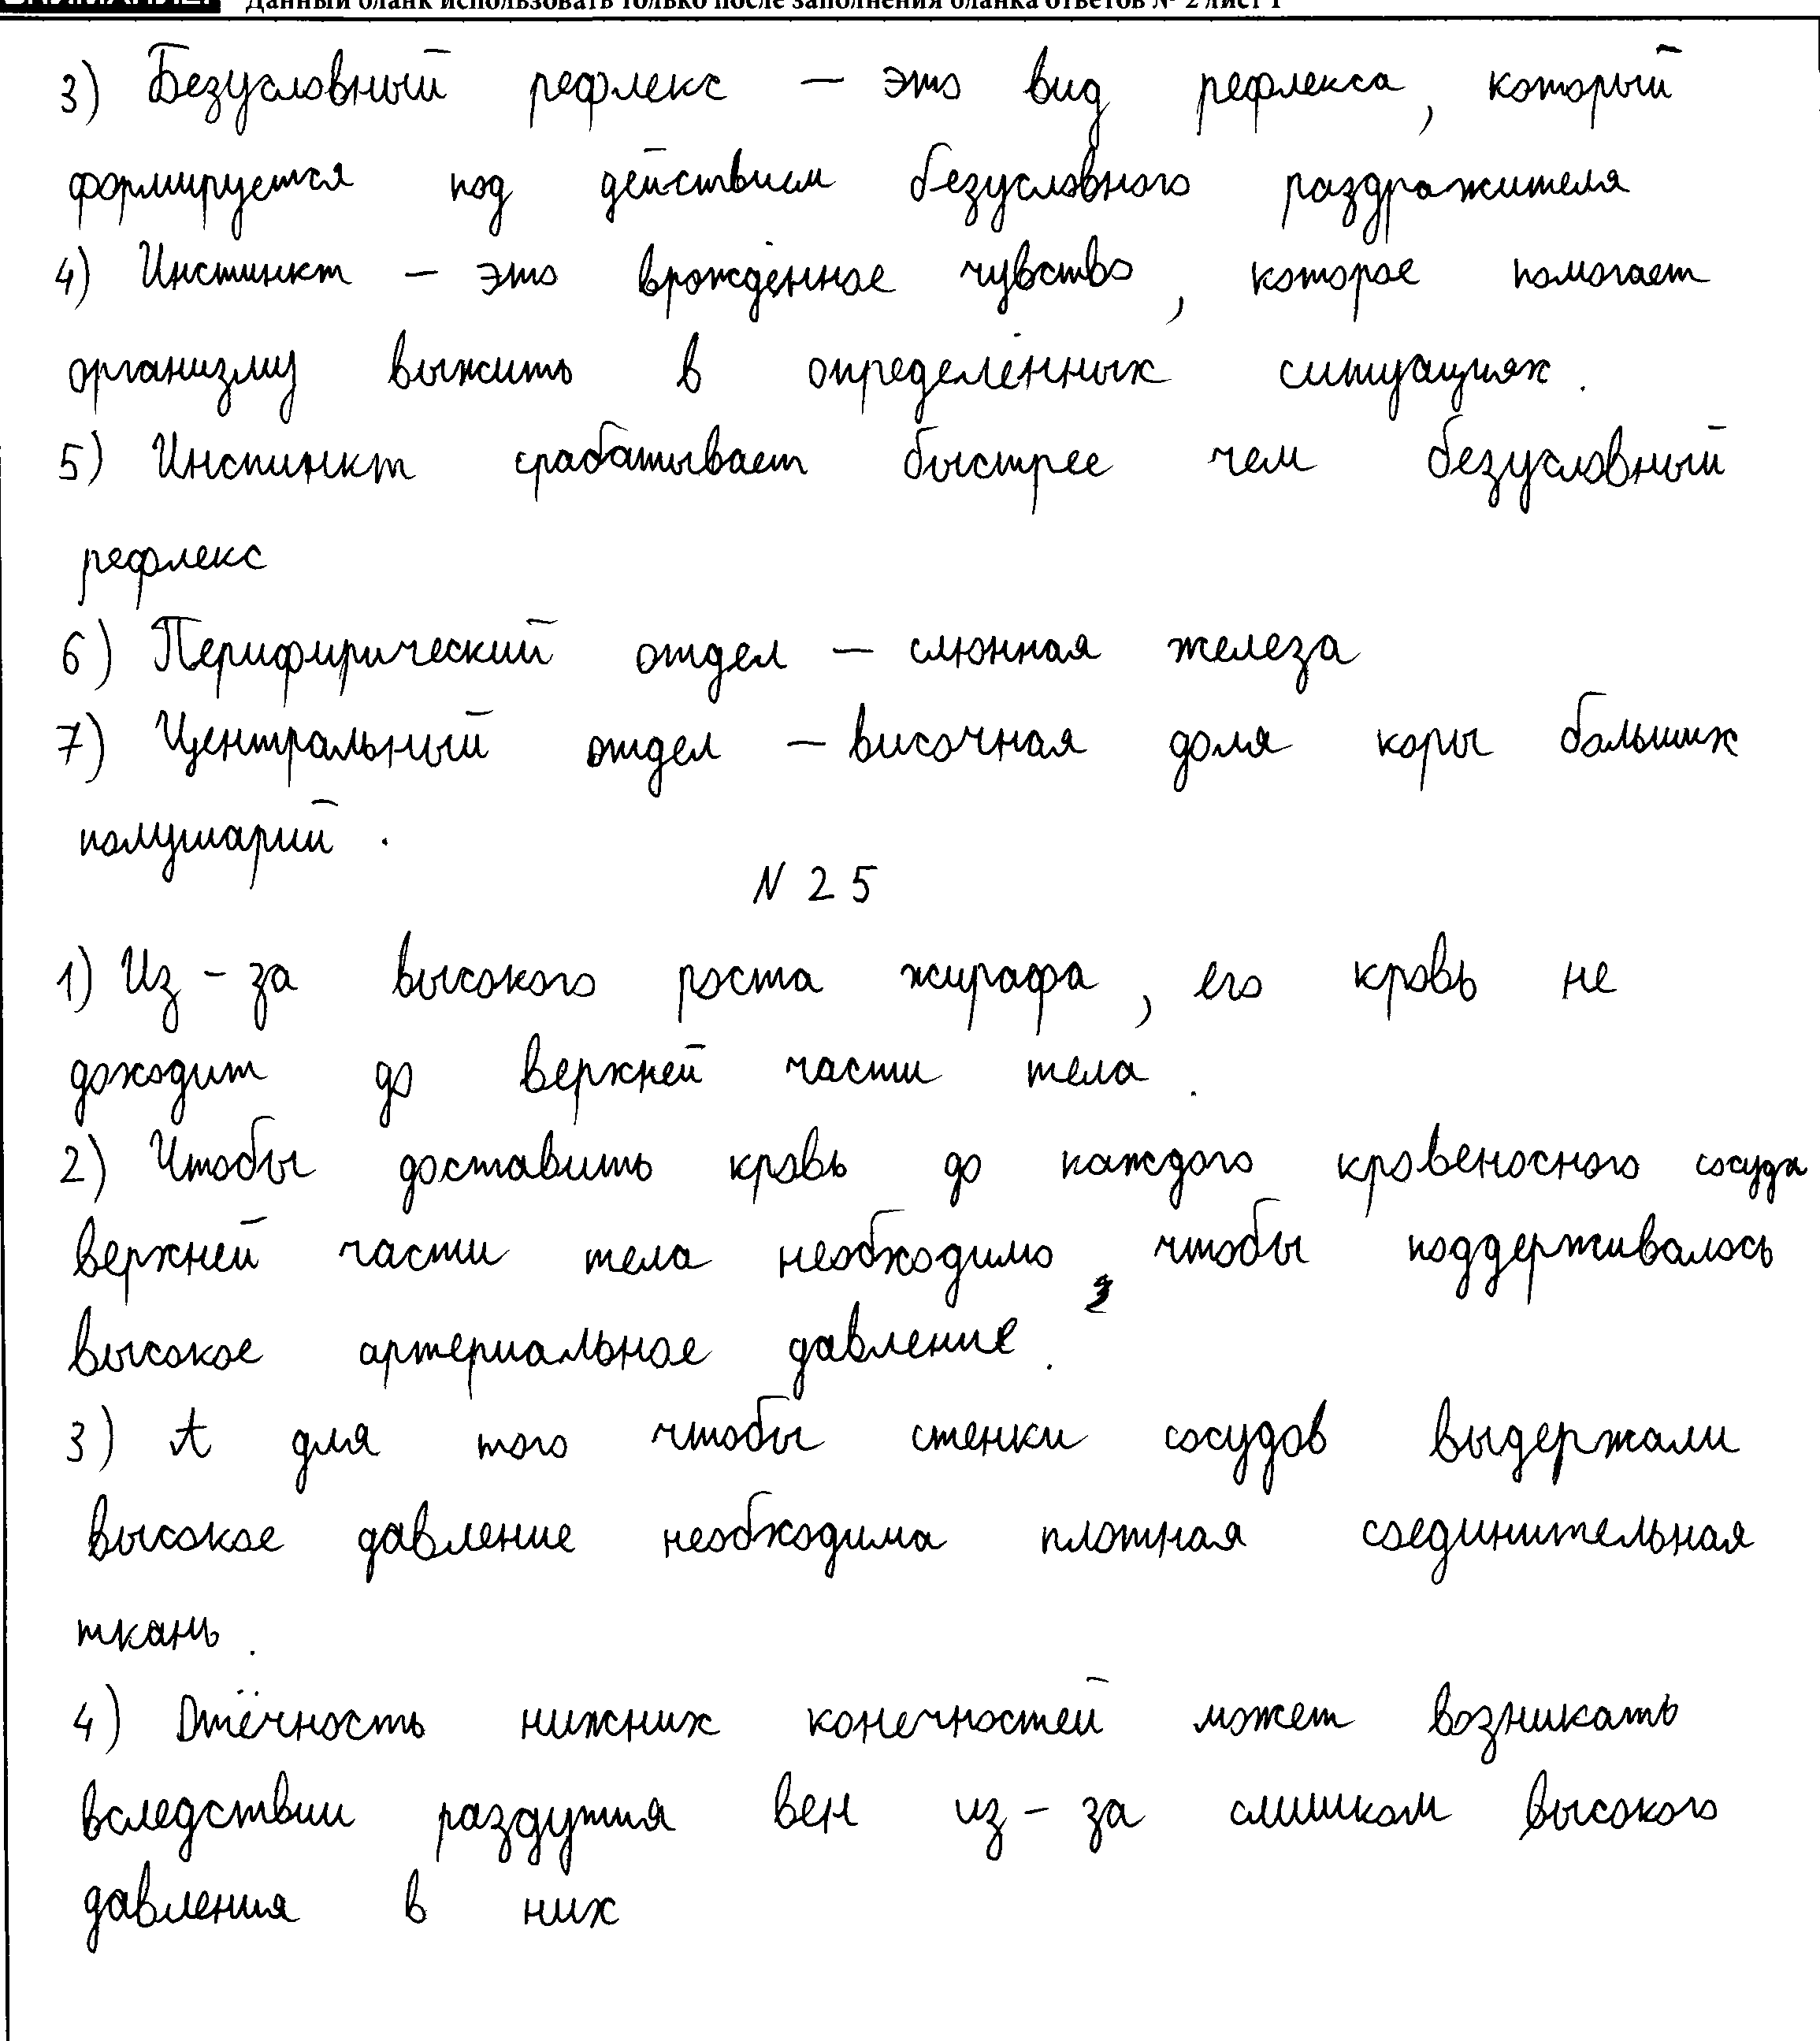 Данный бланк использовать только после заполнения бланка ответов № 2 лист 1
3) Безусловный рефлекс — это вид рефлекса, который
формируется под действием безусловного раздражителя
4) Инстинкт — это врождённое чувство, которое помогает
организму выжить в определённых ситуациях.
5) Инстинкт срабатывает быстрее чем безусловный
рефлекс
6) Перифирический отдел — слюнная железа
7) Центральный отдел — височная доля коры больших
полушарий.
N 25
1) Из-за высокого роста жирафа, его кровь не
доходит до верхней части тела.
2) Чтобы доставить кровь до каждого кровеносного сосуда
верхней части тела необходимо, чтобы поддерживалось
высокое артериальное давление.
3) А для того чтобы стенки сосудов выдержали
высокое давление необходима плотная соединительная
ткань.
4) Отёчность нижних конечностей может возникать
вследствии раздутия вен из-за слишком высокого
давления в них